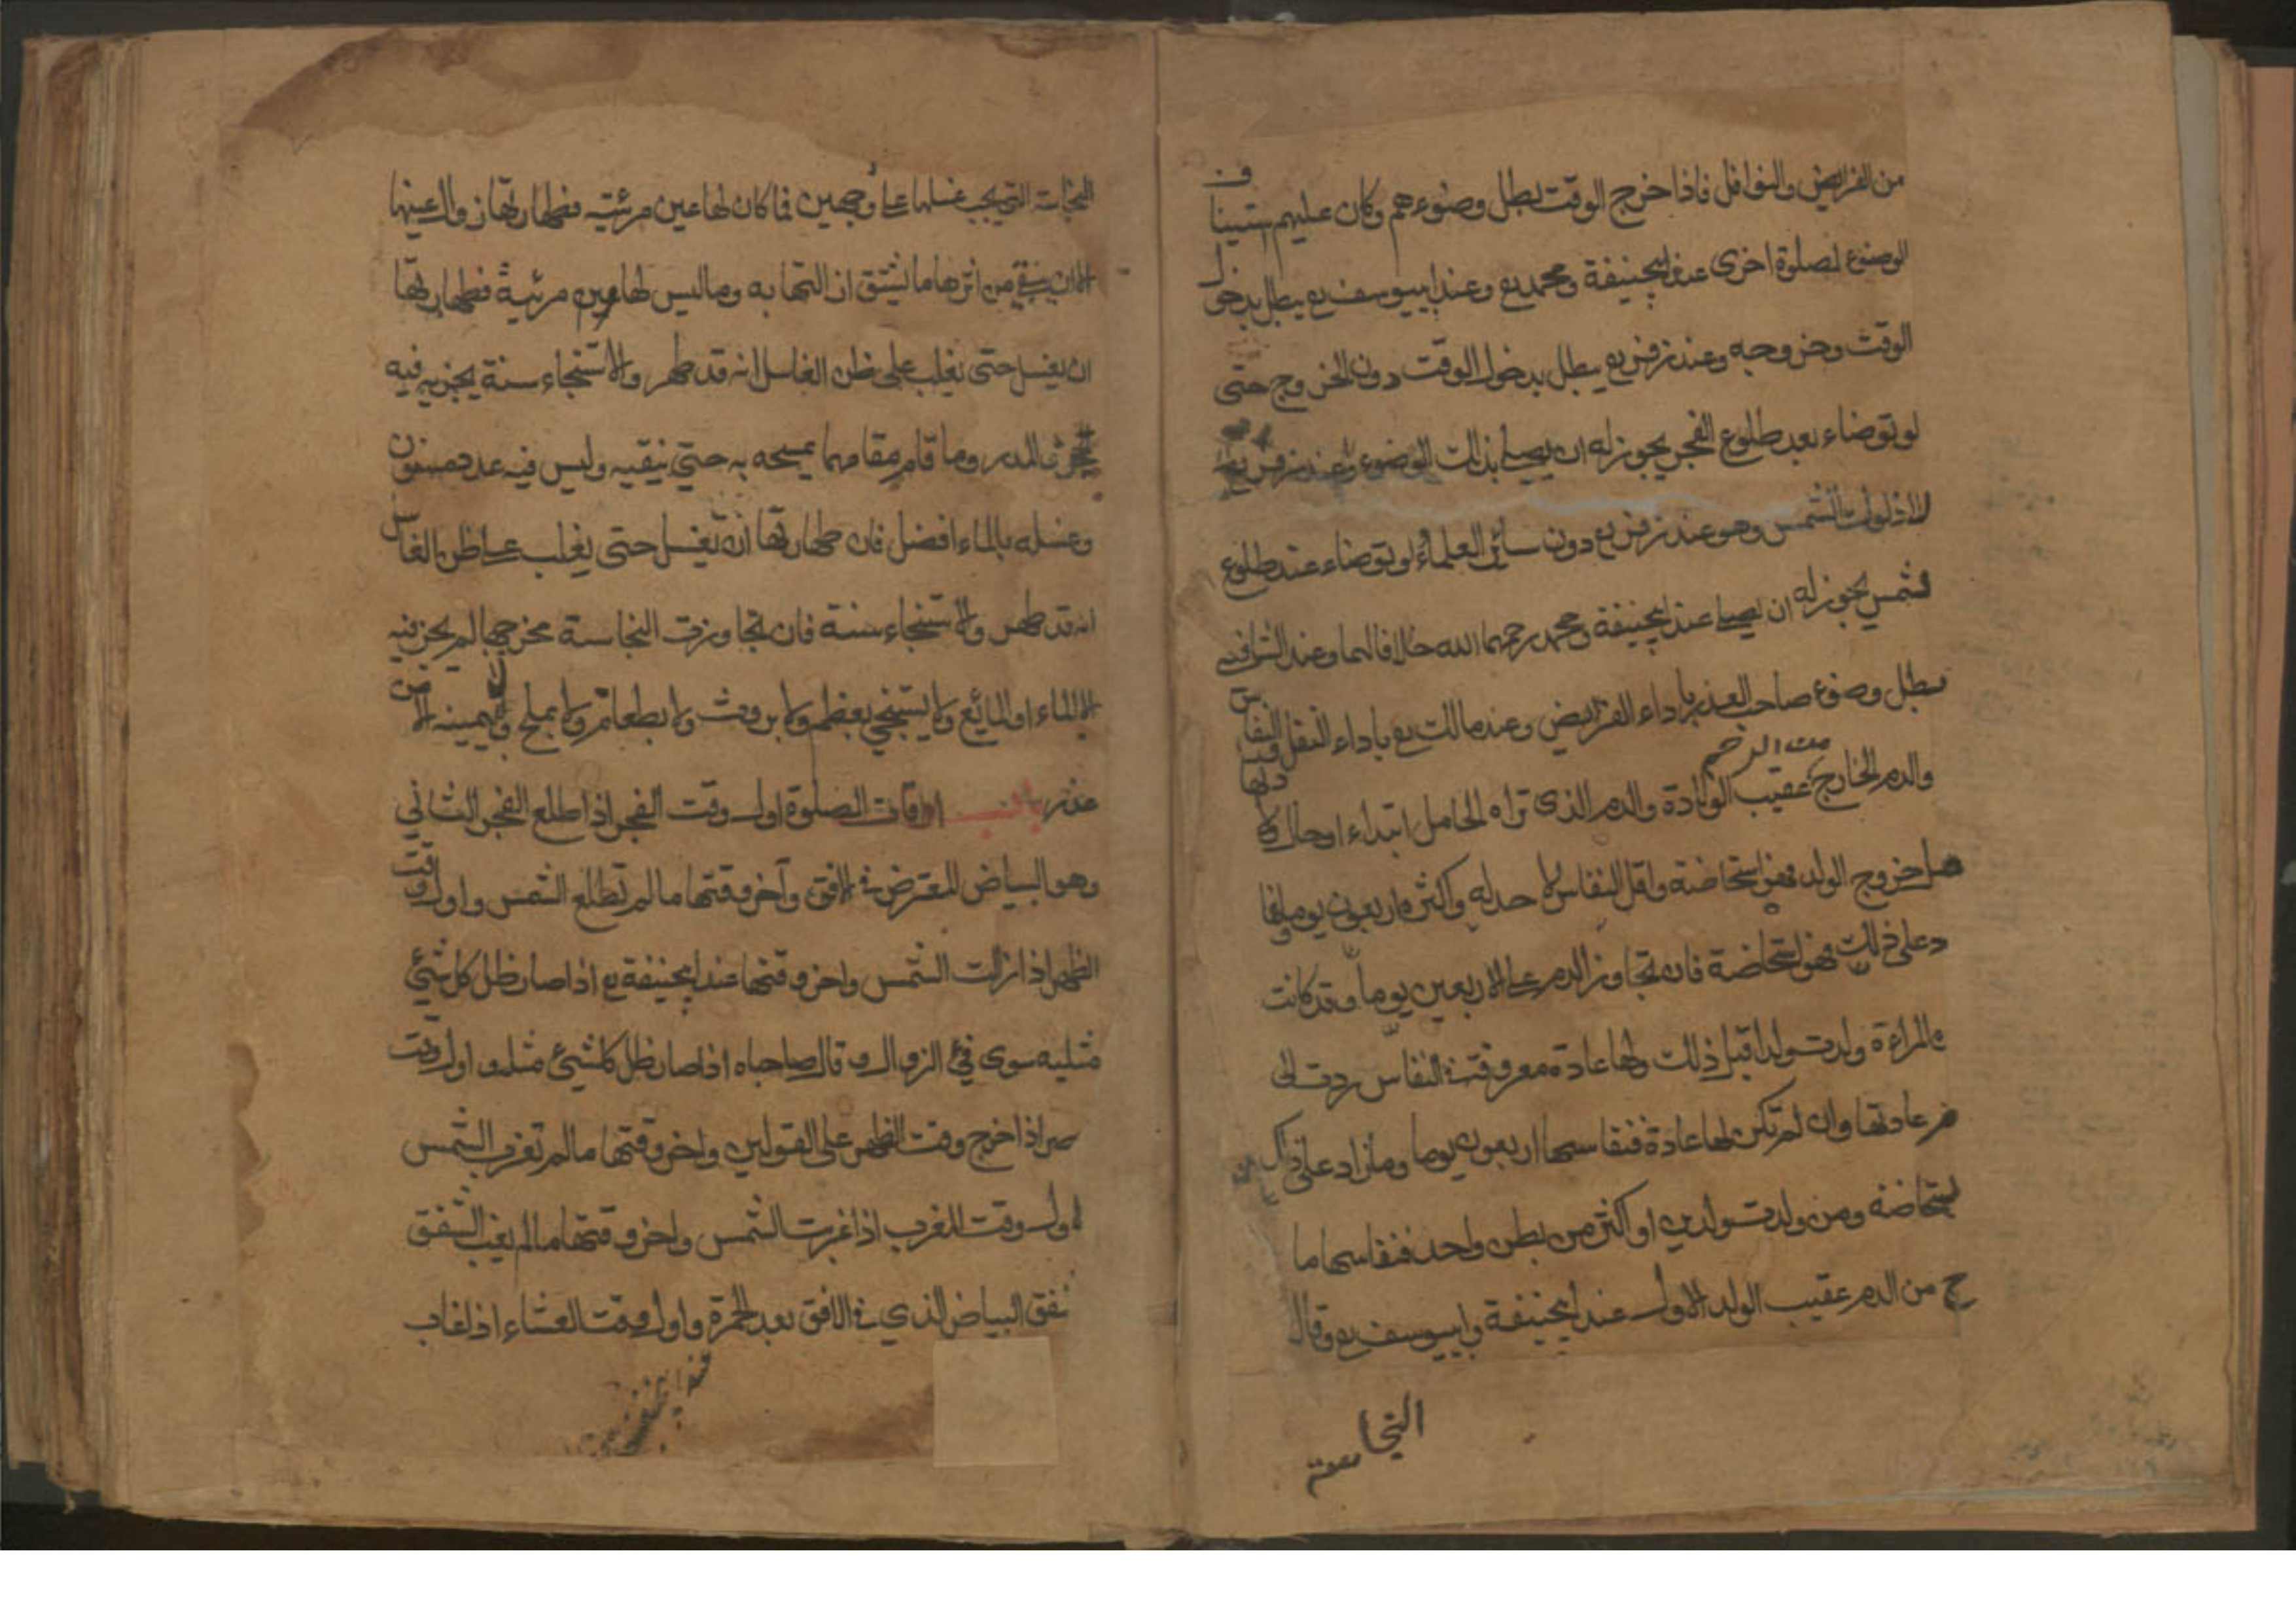 من الفرايض والنوافل فاذا خرج الوقت بطل وضوءهم وكان عليهم ستيناف
الوضوء لصلوة اخرى عند ابيحنيفة ومحمد رح وعند ابييوسف رح يبطل بدخول
الوقت وخروجه وعند زفر رح يبطل بدخول الوقت دون الخروج حتى
لو توضاء بعد طلوع الفجر يجوز له ان يصلي بذلك الوضوء وعند زفر رح
الشمس وهو عند زفر رح دون سائر العلماء لو توضاء عند طلوع
شمس يجوز له ان يصلي عند ابيحنيفة ومحمد رحمهما الله خلافا لهما وعند الشافعي
يبطل وضوء صاحب العذر باداء الفرايض وعند مالك رح باداء النفل النفاس
والدم الخارج عقيب الولادة من الرحم والدم الذي تراه الحامل ابتداء او حال ولادتها
قبل خروج الولد فهو استحاضة واقل النفاس لا حد له واكثره اربعون يوما وما زا
د على ذلك فهو استحاضة فان تجاوز الدم على الاربعين يوما وقد كانت
المراءة ولدت ولدا قبل ذلك ولها عادة معروفة في النفاس ردت الى
عادتها وان لم تكن لها عادة فنفاسها اربعون يوما وما زاد على ذلك
ستحاضة ومن ولدت ولدين او اكثر من بطن واحد فنفاسها ما
ج من الدم عقيب الولد الاول عند ابيحنيفة وابييوسف رح وقال
النجاسة
النجاسة التي يجب غسلها على وجهين فما كان لها عين مرئية فطهارتها زوال عينها
الا ان يبقى من اثرها ما يشق ازالتها به وما ليس لها عين مرئية فطهارتها
ان يغسل حتى يغلب على ظن الغاسل انه قد طهر والاستنجاء سنة يجزيه فيه
الحجر والمدر وما قام مقامهما يمسحه به حتى ينقيه وليس فيه عدد مسنون
وغسله بالماء افضل فان طهارتها ان تغسل حتى يغلب على ظن الغاسل
انه قد طهر والاستنجاء سنة فان تجاوزت النجاسة مخرجها لم يجز فيه
الا الماء او المايع ولا يستنجي بعظم ولا بروث ولا بطعام ولا بملح ولا بيمينه الا من
عذر باب اوقات الصلوة اول وقت الفجر اذا طلع الفجر الثاني
وهو البياض المعترض في الافق وآخر وقتها ما لم تطلع الشمس واول وقت
الظهر اذا زالت الشمس واخر وقتها عند ابيحنيفة رح اذا صار ظل كل شيئ
مثليه سوى فيئ الزوال وقال صاحباه اذا صار ظل كل شيئ مثله واول وقت
صر اذا خرج وقت الظهر على القولين واخر وقتها ما لم تغرب الشمس
اول وقت المغرب اذا غربت الشمس واخر وقتها ما لم يغب الشفق
شفق البياض الذي في الافق بعد الحمرة واول وقت العشاء اذا غاب